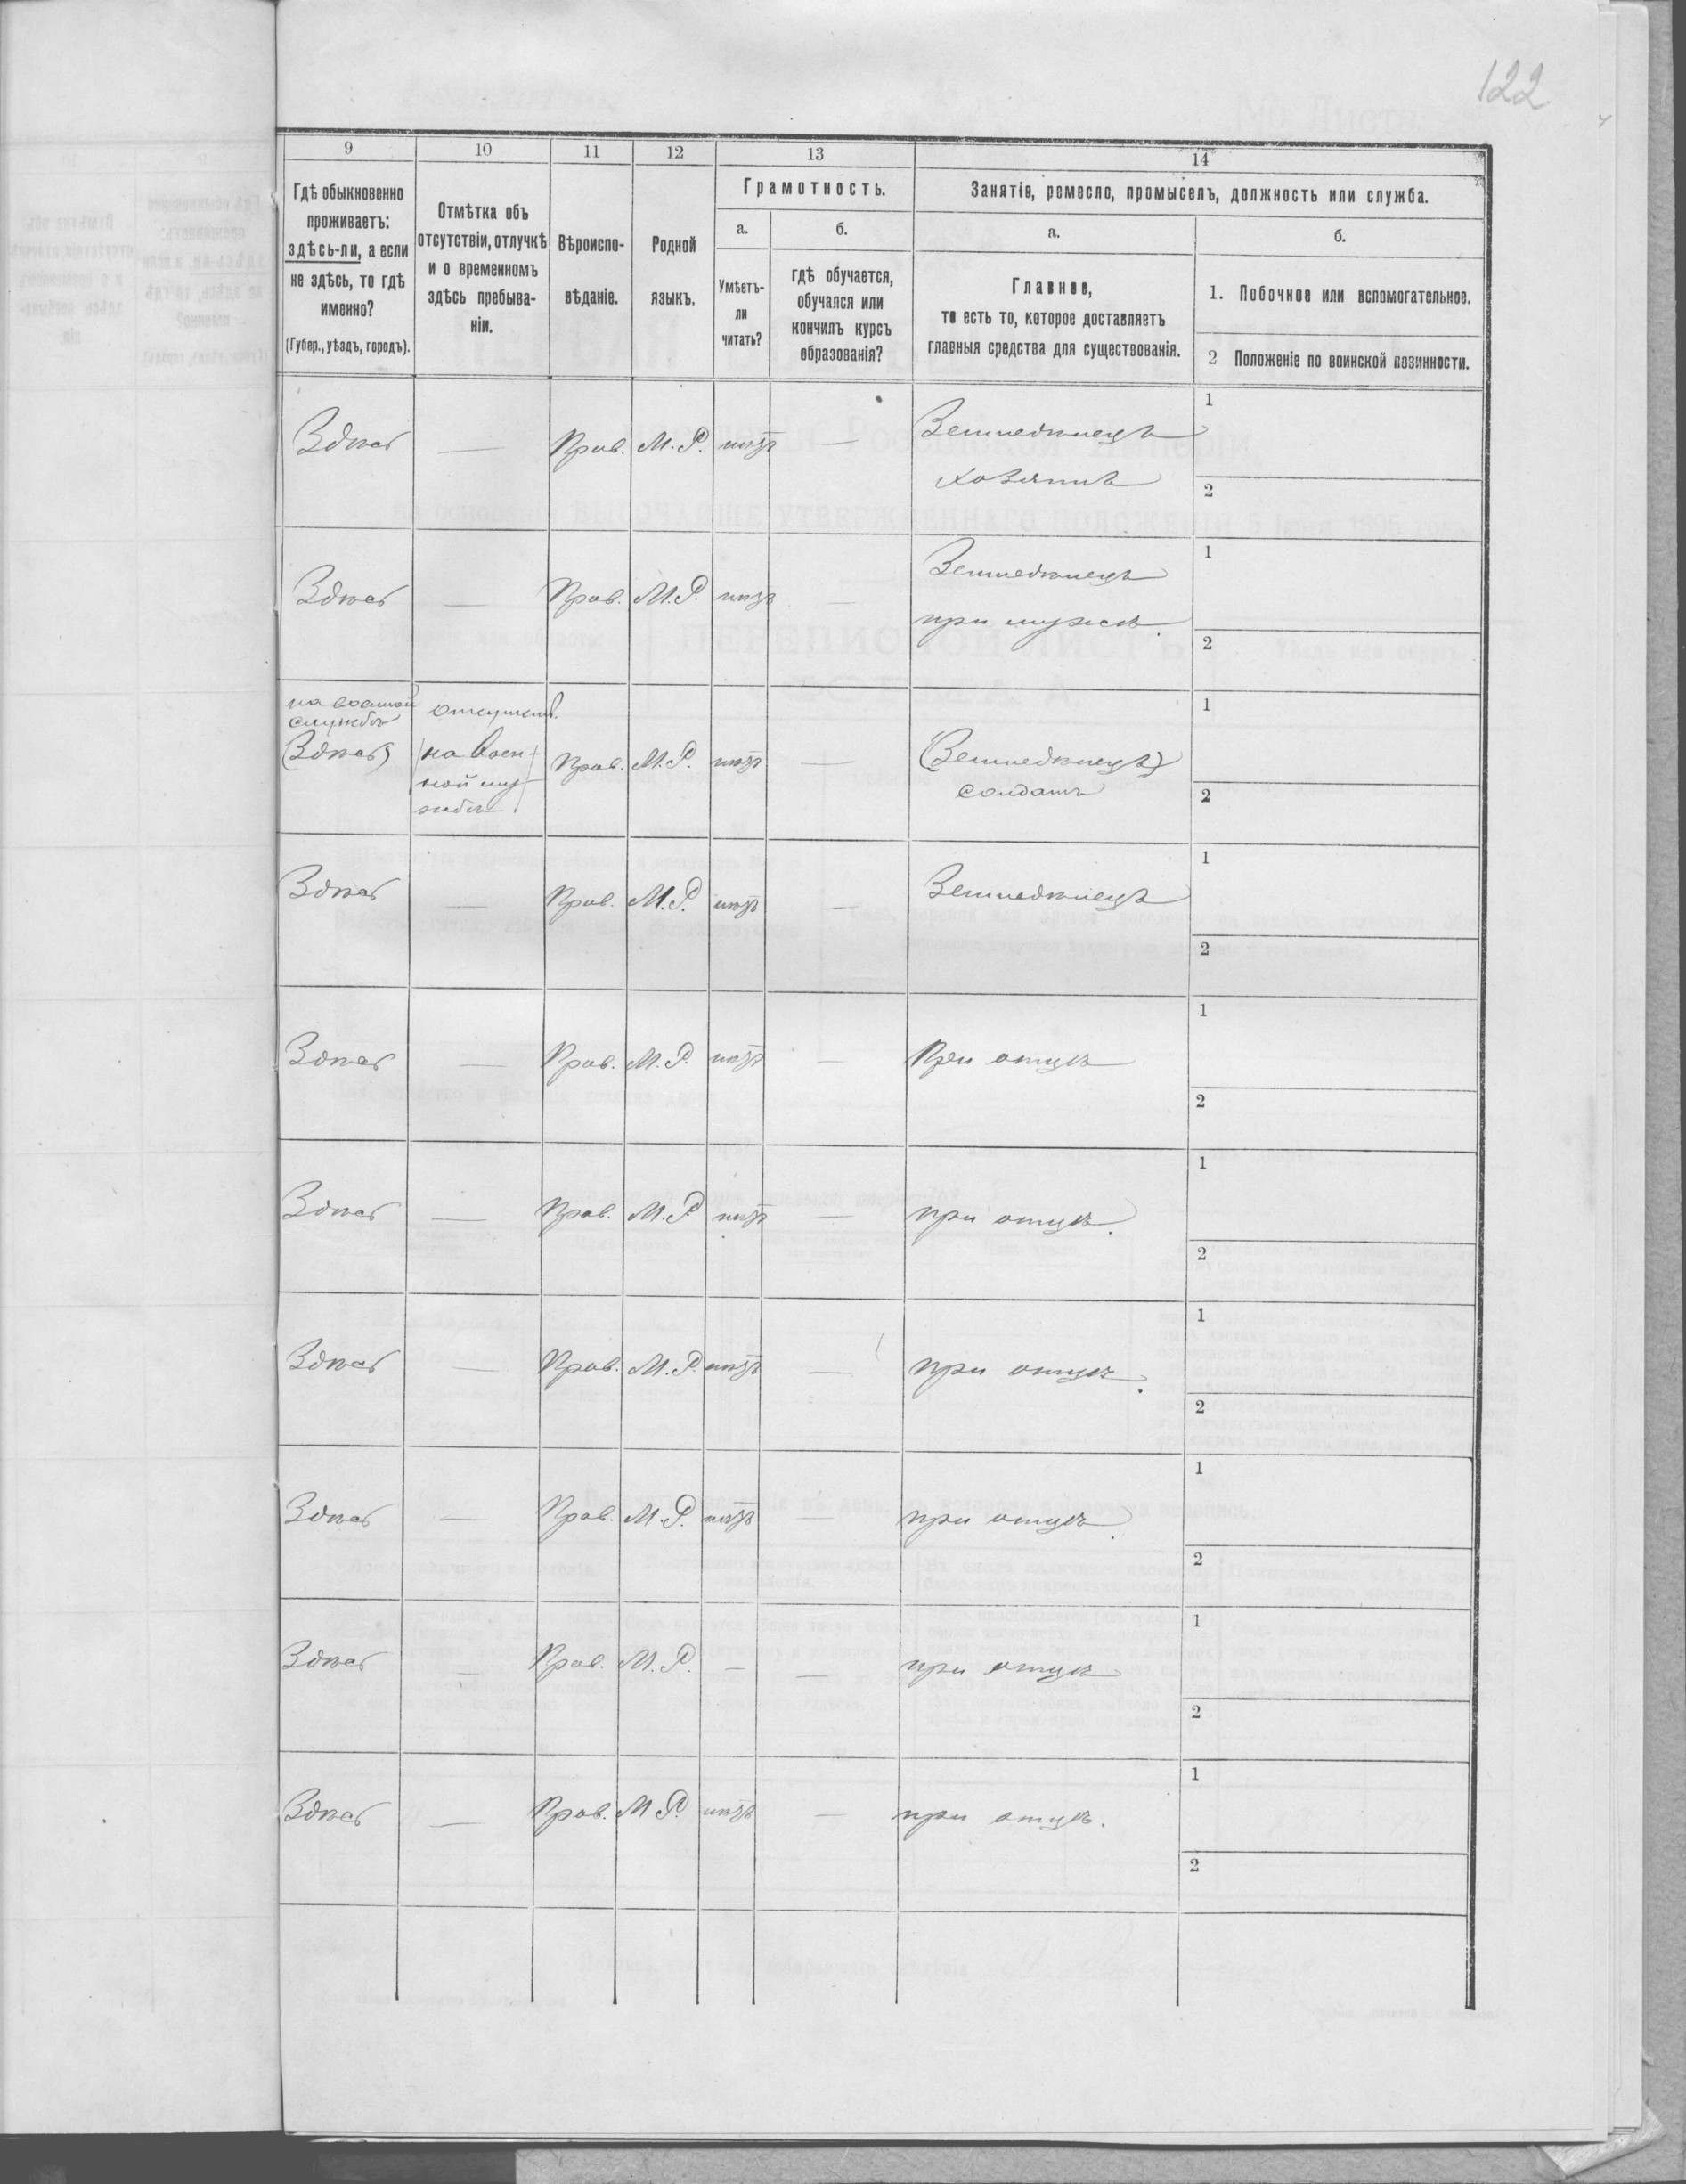 122
9 10 11 12 13 14
Гдѣ обыкновенно
проживаетъ:
здѣсь-ли, а если
не здѣсь, то гдѣ
именно?
(Губер., уѣздъ, городъ).
Отмѣтка объ
отсутствіи, отлучкѣ
и о временномъ
здѣсь пребыва-
ніи.
Вѣроиспо-
вѣданіе.
Родной
языкъ.
Грамотность.
а.
Умѣетъ-
ли
читать?
б.
гдѣ обучается,
обучался или
кончилъ курсъ
образованія?
Занятія, ремесло, промыселъ, должность или служба.
а.
Главное,
то есть то, которое доставляетъ
главныя средства для существованія.
б.
1. Побочное или вспомогательное.
2 Положеніе по воинской повинности.
Здѣсь — Прав. М. Р. нѣтъ — Земледѣлецъ 1
хозяинъ 2
Здѣсь — Прав. М. Р. нѣтъ — Земледѣлецъ 1
при мужѣ. 2
на военной
службѣ
(Здѣсь)
отсутств.
на воен-
ной слу-
жбѣ.
Прав. М. Р. нѣтъ — (Земледѣлецъ) 1
солдатъ 2
Здѣсь — Прав. М. Р. нѣтъ — Земледѣлецъ 1
2
Здѣсь — Прав. М. Р. нѣтъ — При отцѣ 1
2
Здѣсь — Прав. М. Р. нѣтъ — при отцѣ. 1
2
Здѣсь — Прав. М. Р. нѣтъ — при отцѣ. 1
2
Здѣсь — Прав. М. Р. нѣтъ — при отцѣ. 1
2
Здѣсь — Прав. М. Р. — — при отцѣ 1
2
Здѣсь — Прав. М Р. нѣтъ — при отцѣ. 1
2